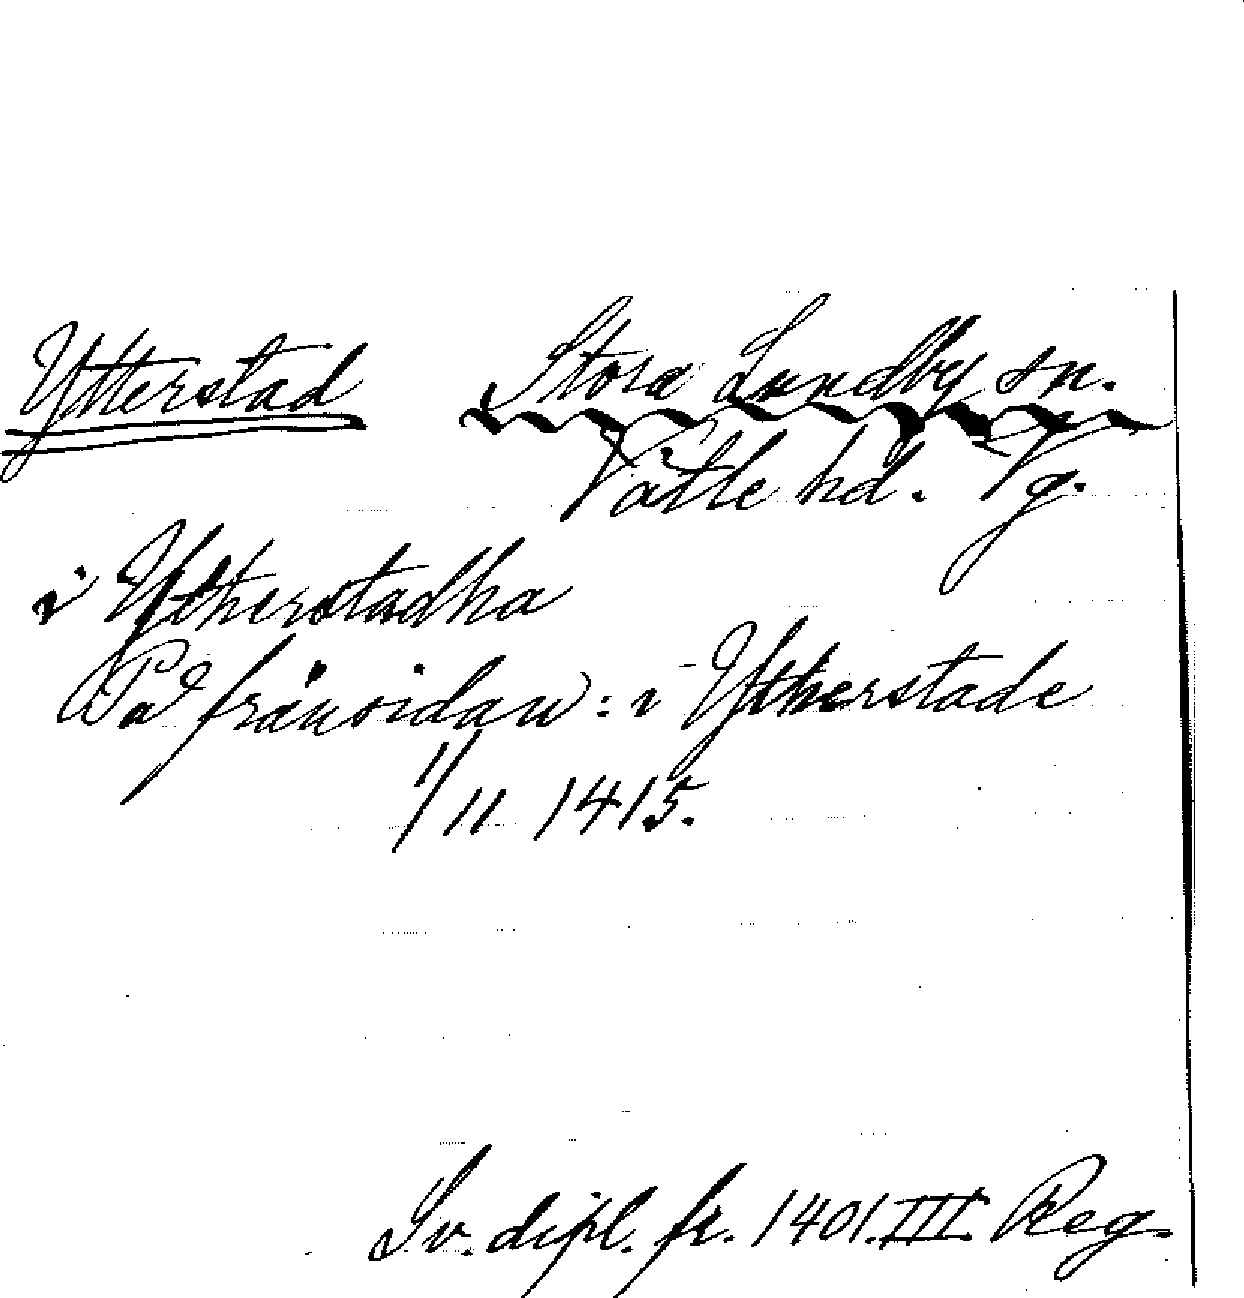 Ytterstad Stora Lundby sn.
Vätle hd. Vg.
i Ytherstadha
På frånsidan: i Ytherstade
1/11 1415.
Sv. dipl. fr. 1401. III. Reg.